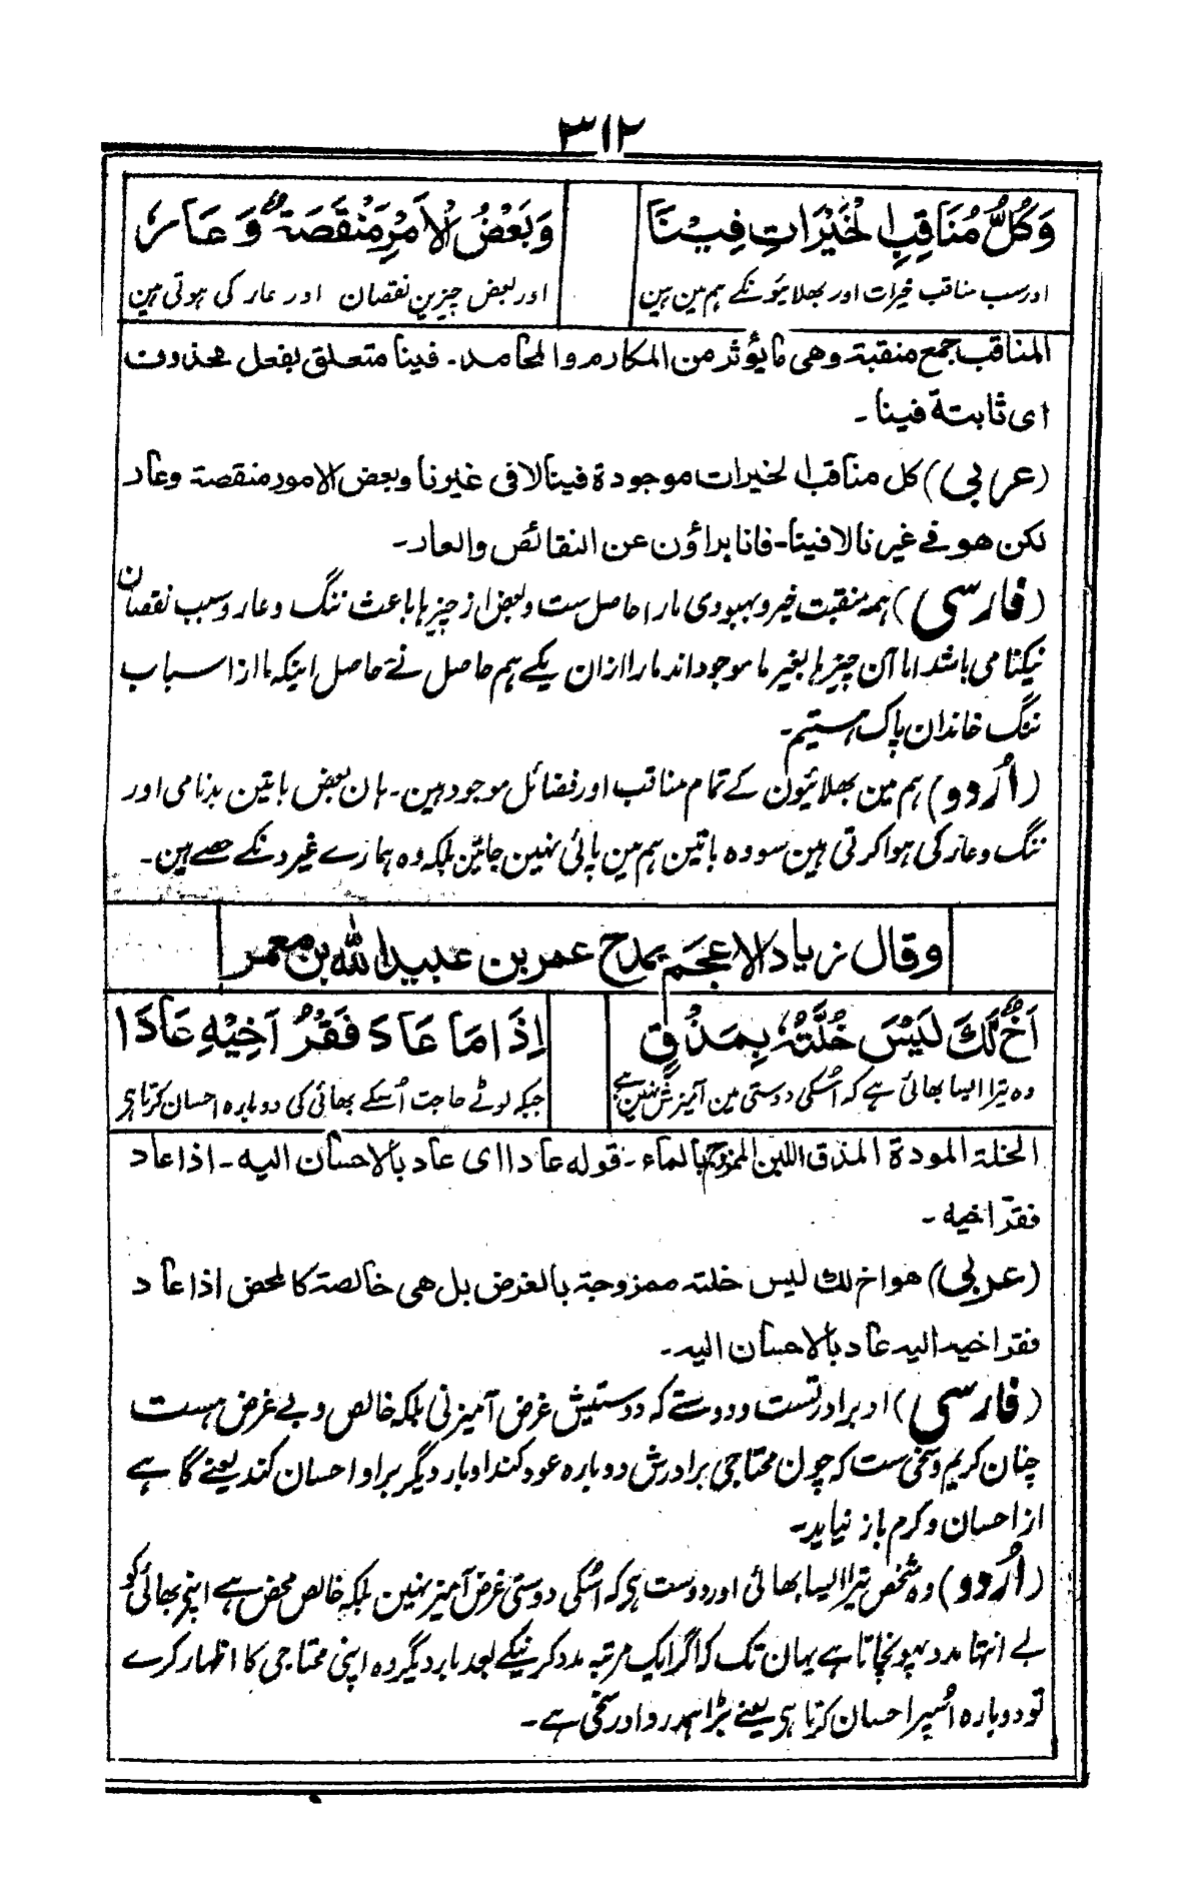 ٣١٢
وَكُلُّ مُنَاقِبِ الْخَيْرَاتِ فِيْنَا
وَبَعْضُ الْاَمْرِ مَنْقَصَةٌ وَعَارٗ
اور سب مناقب خیرات اور بھلائیونکے ہم مین ہین
اور بعض چیزین نقصان اور عار کی ہوتی ہین
المناقب جمع منقبة وهی مایؤثر من المکارم والمحامد۔ فینا متعلق بفعل محذوف
ای ثابتة فینا۔
(عربی) کل مناقب الخیرات موجودة فینا لا فی غیرنا وبعض الامور منقصة وعار
لکن هو فے غیرنا لا فینا۔ فانا براؤن عن النقائص والعار۔
(فارسی) ہمہ منقبت خیر و بہبودی مارا حاصل ست و بعض از چیزہا باعث ننگ و عار و سبب نقصان
نیکنامی باشد اما آن چیزہا بغیر ما موجود اند مارا ازان یکے ہم حاصل نے حاصل اینکہ ما از اسباب
ننگ خاندان پاک ہستیم۔
(اُردو) ہم مین بھلائیون کے تمام مناقب اور فضائل موجود ہین۔ ہان بعض باتین بدنامی اور
ننگ و عار کی ہوا کرتی ہین سو وہ باتین ہم مین پائی نہین جاتین بلکہ وہ ہمارے غیرونکے حصے ہین۔
وقال زیاد الاعجم یمدح عمر بن عبید الله بن معمر
اَخٌ لَّكَ لَيْسَ خُلَّتُهٗ بِمَذْقٍ
اِذَا مَا عَادَ فَقْرُ اَخِيْهِ عَادَا
وہ تیرا ایسا بھائی ہے کہ اُسکی دوستی مین آمیزش نہین ہے
جبکہ لوٹے حاجت اُسکے بھائی کی دوبارہ احسان کرتا ہی
الخلة المودة المذق اللبن الممزوج بالماء۔ قوله عادا ای عاد بالاحسان الیه۔ اذا عاد
فقر اخیه۔
(عربی) هو اخ لك لیس خلته ممزوجة بالغرض بل هی خالصة کالمحض اذا عاد
فقر اخیه الیه عاد بالاحسان الیه۔
(فارسی) او برادرتست و دوستے کہ دوستیش غرض آمیزنی بلکہ خالص و بے غرض ہست
چنان کریم و سخی ست کہ چون محتاجی برادرش دوبارہ عود کند او بار دیگر بر او احسان کند یعنے گاہے
از احسان و کرم باز نیاید۔
(اُردو) وہ شخص تیرا ایسا بھائی اور دوست ہی کہ اُسکی دوستی غرض آمیز نہین بلکہ خالص محض ہے اپنے بھائی کو
بے انتہا مدد پہونچاتا ہے یہان تک کہ اگر ایک مرتبہ مدد کرنیکے بعد بار دیگر وہ اپنی محتاجی کا اظہار کرے
تو دوبارہ اُسپر احسان کرتا ہی یعنے بڑا ہمدرد اور سخی ہے۔